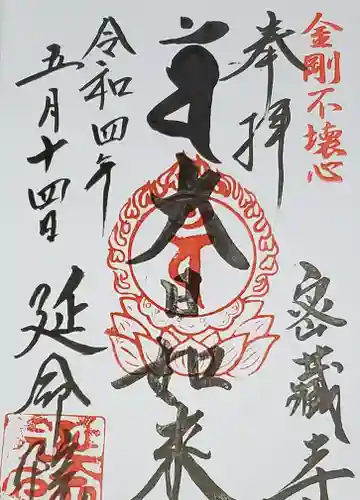 金剛不壊心
奉拝
密藏寺
大日如来
令和四年
五月十四日
延命